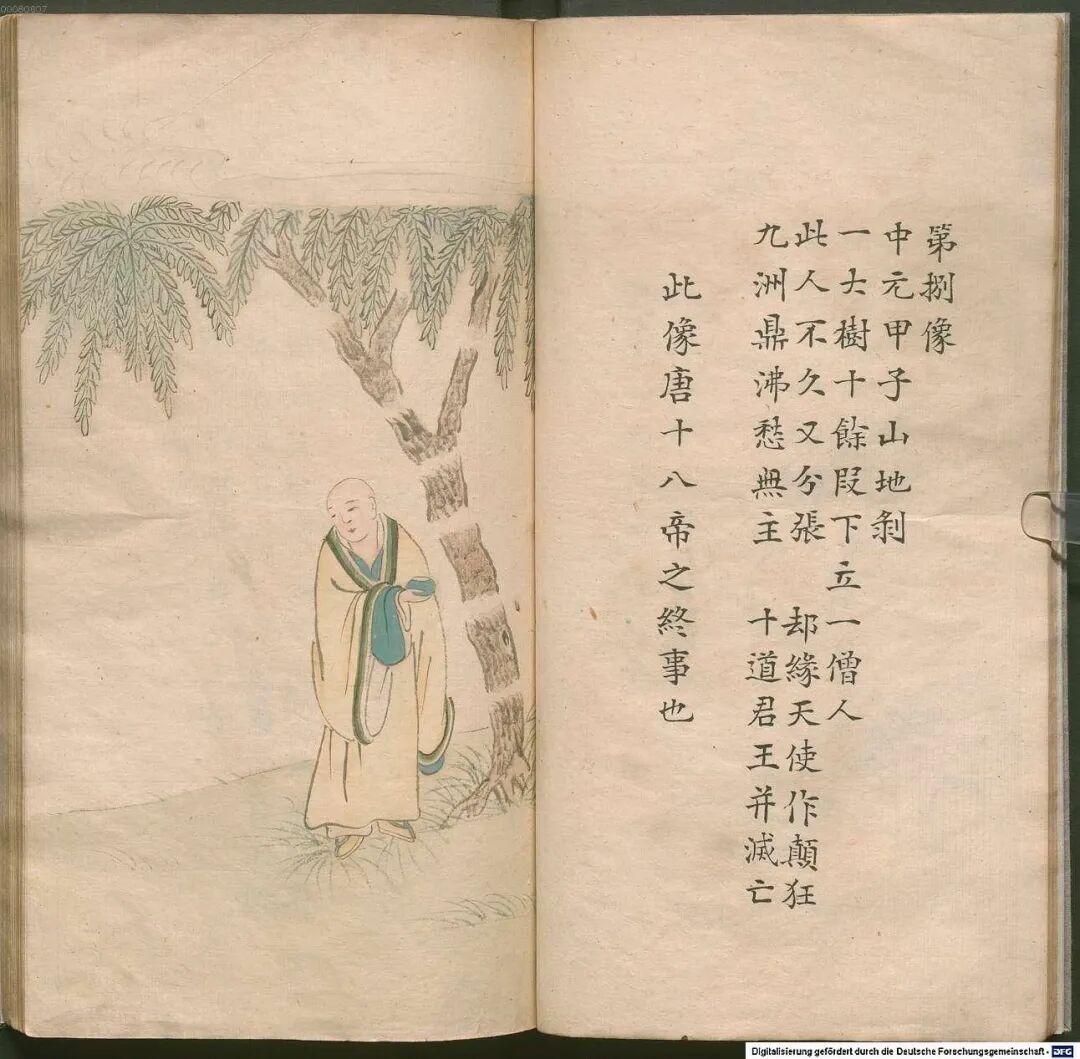 00080807
第捌像
中元甲子山地剝
一大樹十餘段下立一僧人
此人不久又分張 却緣天使作顛狂
九洲鼎沸愁無主 十道君王并滅亡
此像唐十八帝之終事也
Digitalisierung gefördert durch die Deutsche Forschungsgemeinschaft - DFG